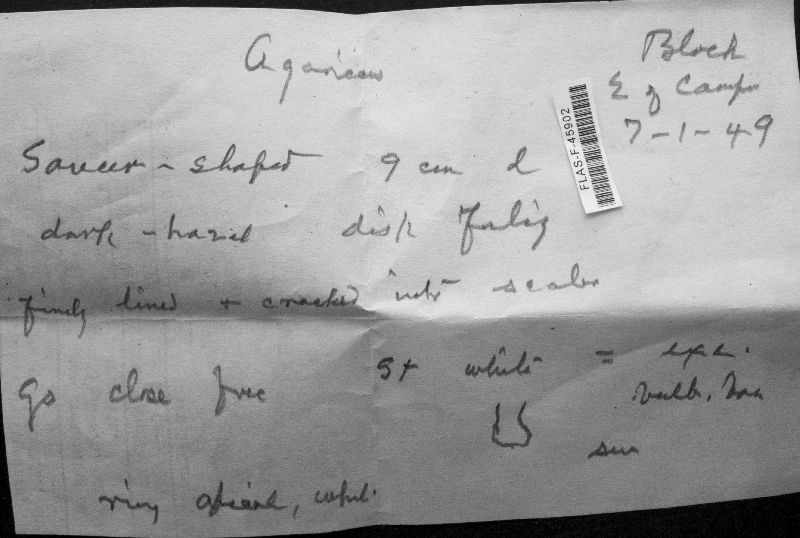 Agaricus
Block
E of Campus
7-1-49
FLAS-F-45902
Saucer-shaped 9 cm d
dark-hazel disk
finely lined + cracked into scales
gs close free
st white = exp.
bulb.
ring apical, white